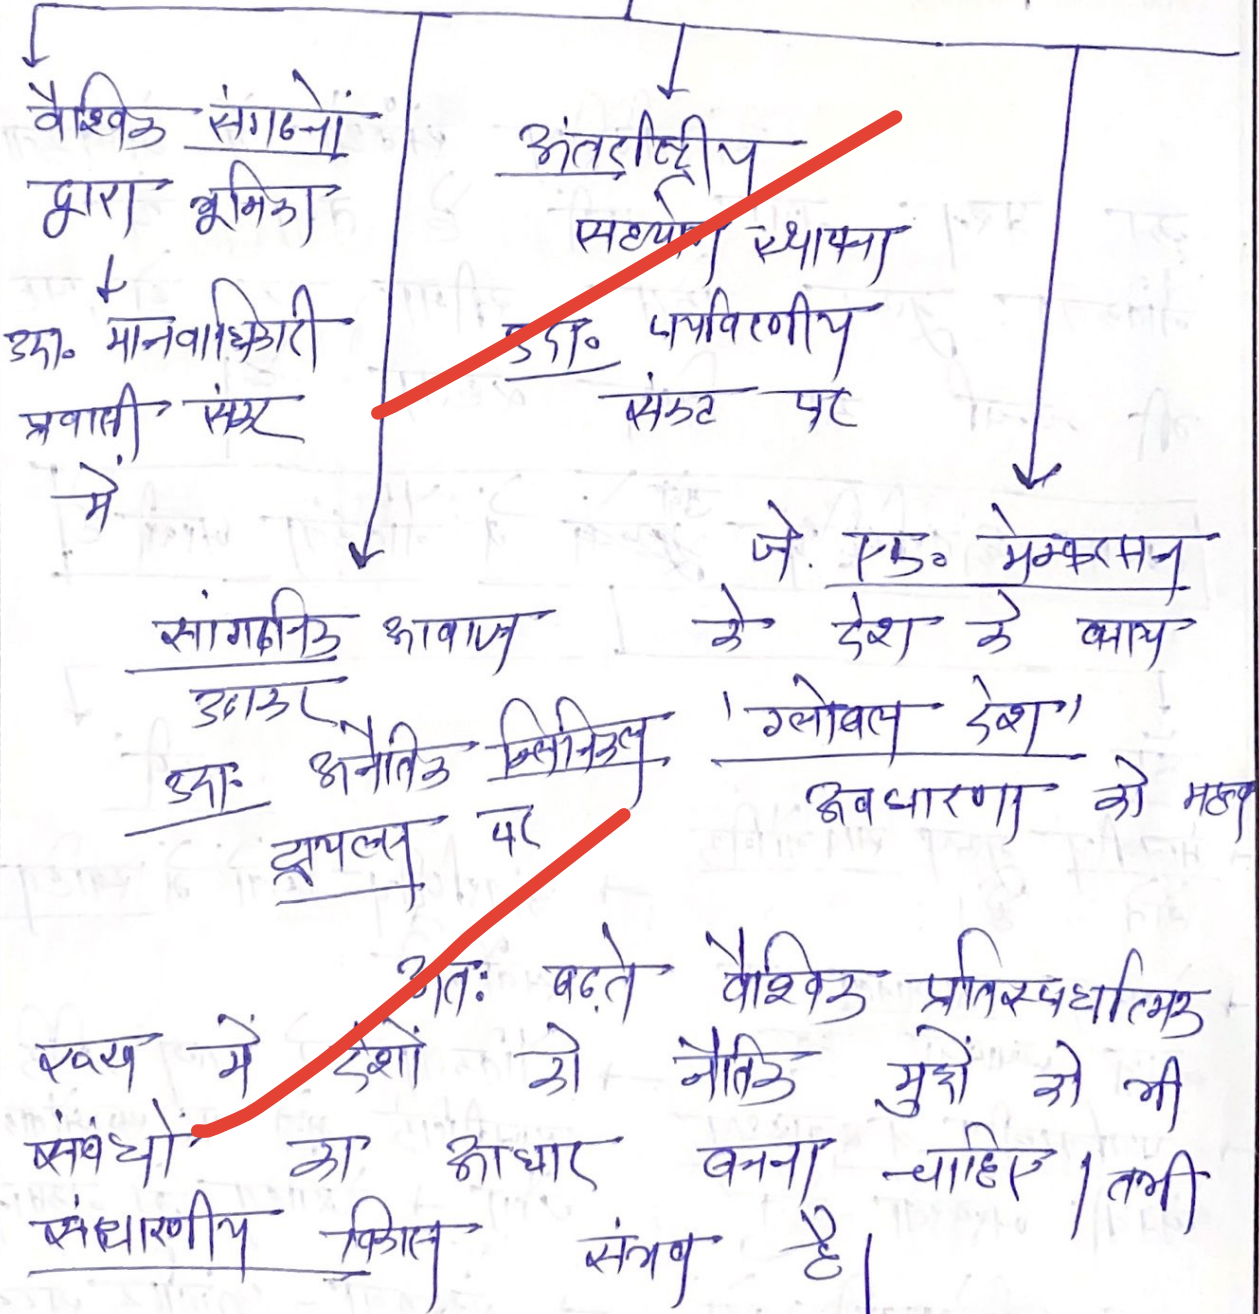 वैश्विक संगठनों
द्वारा भूमिका
उदा० मानवाधिकारी
प्रवासी संकट
में
अंतर्राष्ट्रीय
सहयोग स्थापना
उदा० पर्यावरणीय
संकट पर
सांगठनिक आवाज
उठाकर
उदा: अनैतिक क्लिनिकल
ट्रायल्स पर
जे. एफ०
के देश के बजाय
'ग्लोबल देश'
अवधारणा को महत्व
अत: बढ़ते वैश्विक प्रतिस्पर्धात्मक
स्वरूप में देशों को नैतिक मुद्दों को भी
संबंधों का आधार बनना चाहिए। तभी
संधारणीय विकास संभव है।